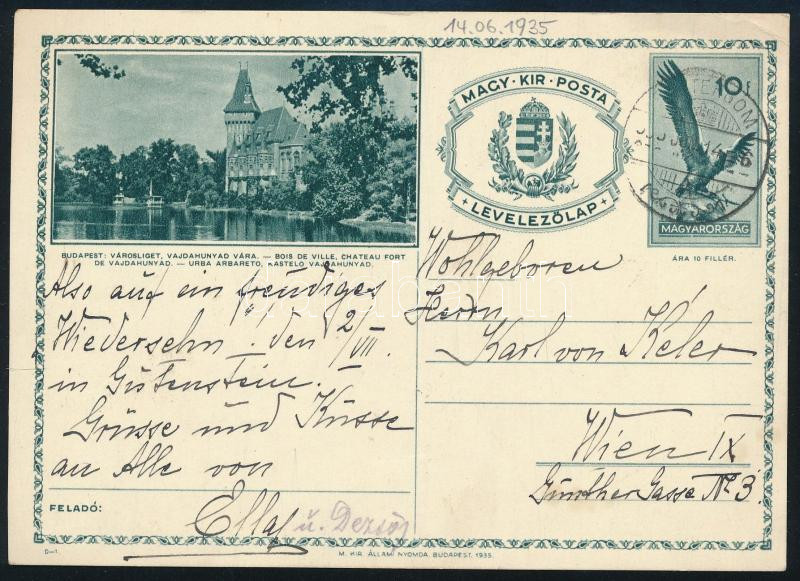 14.06.1935
MAGY·KIR·POSTA
LEVELEZŐLAP
10f
MAGYARORSZÁG
ÁRA 10 FILLÉR.
BUDAPEST: VÁROSLIGET, VAJDAHUNYAD VÁRA. — BOIS DE VILLE, CHATEAU FORT
DE VAJDAHUNYAD. — URBA ARBARETO, KASTELO VAJDAHUNYAD.
Also auf ein freudiges
Wiedersehn! den 2/VII.
in Gutenstein. —
Grüsse und Küsse
an Alle von
Ella u. Dezső
Wohlgeboren
Herrn
Karl von Kéler
Wien IX
Günther Gasse No 3.
FELADÓ:
D-1.
M. KIR. ÁLLAMI NYOMDA, BUDAPEST. 1935.